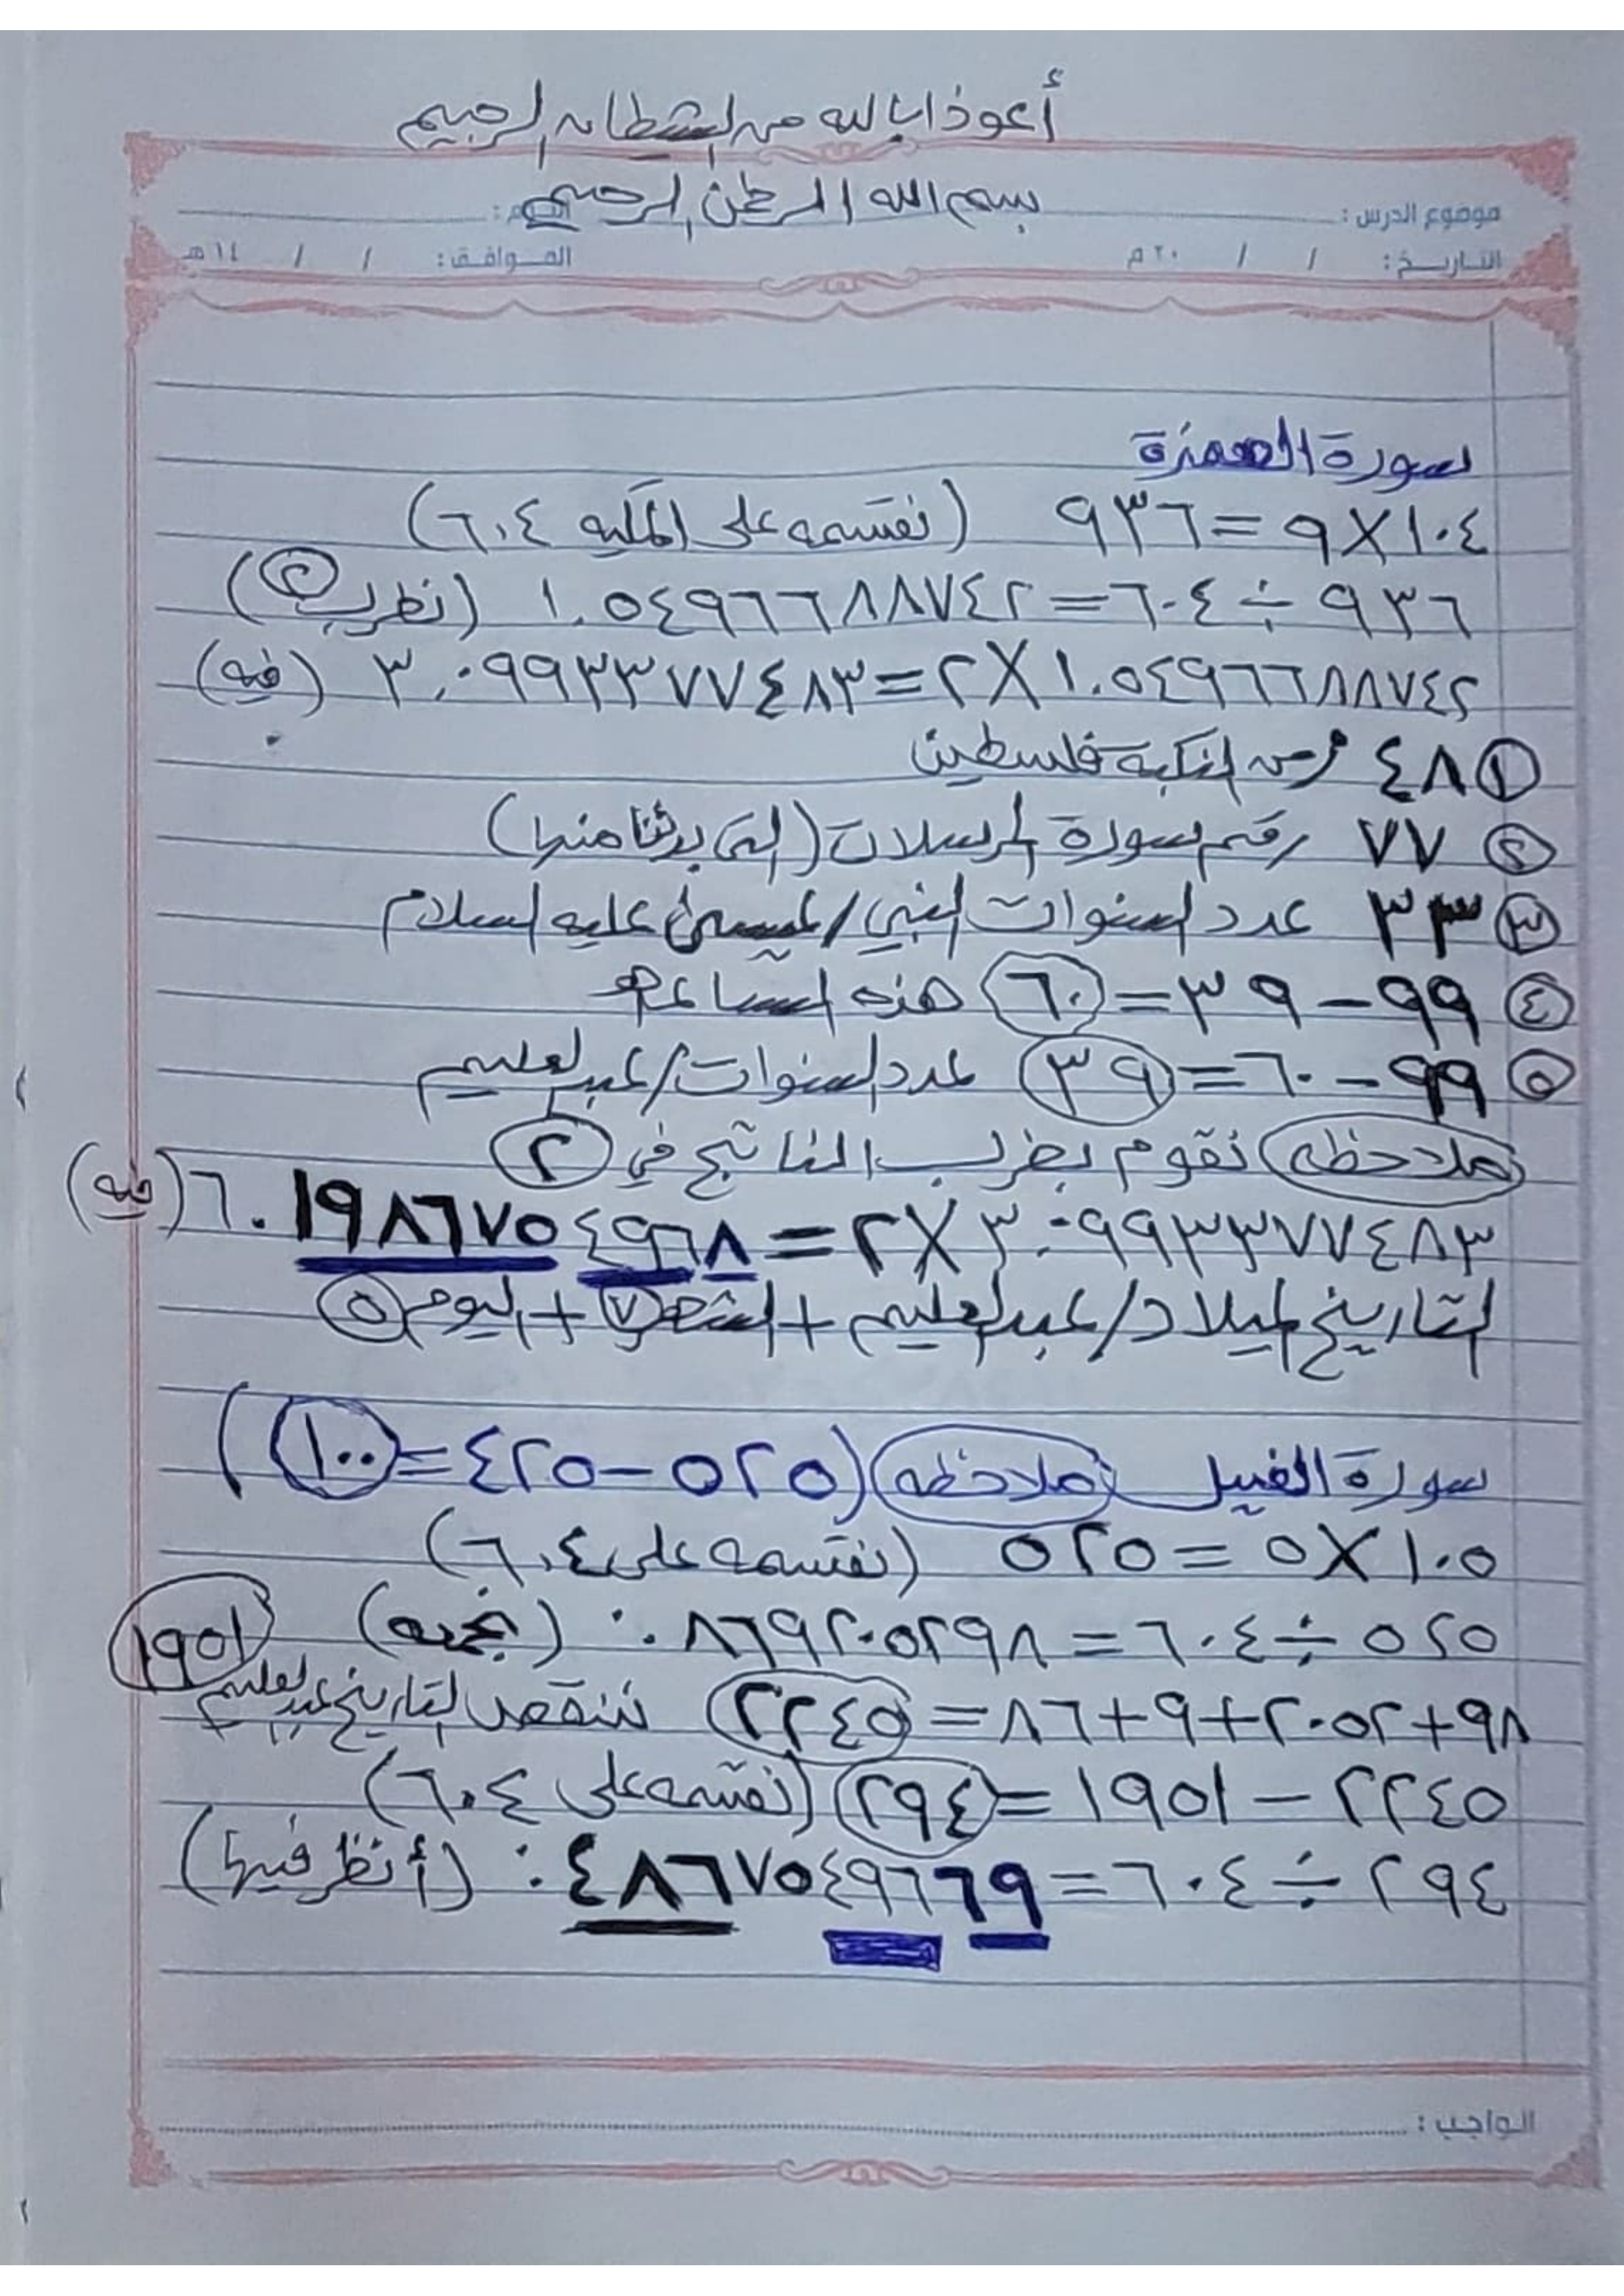 أعوذ بالله من الشيطان الرجيم
بسم الله الرحمن الرحيم
موضوع الدرس : اليوم :
التاريخ : / / ٢٠ م الموافق : / / ١٤ هـ
سورة الهمزة
١٠٤ × ٩ = ٩٣٦ (نقسمه على المكيه ٦٠٤)
٩٣٦ ÷ ٦٠٤ = ١.٥٤٩٦٦٨٨٧٤٢ (نضرب ٢)
١.٥٤٩٦٦٨٨٧٤٢ × ٢ = ٣.٠٩٩٣٣٧٧٤٨٣ (فيه)
١ ٤٨ النكبة فلسطين
٢ ٧٧ رقم سورة المرسلات (التي بدئنا منها)
٣ ٣٣ عدد السنوات النبي / عيسى عليه السلام
٤ ٩٩ - ٣٩ = ٦٠ هذه الساعه
٥ ٩٩ - ٦٠ = ٣٩ عدد السنوات / عبدالعليم
ملاحظه نقوم بضرب الناتج في ٢
٣.٠٩٩٣٣٧٧٤٨٣ × ٢ = ٦.١٩٨٦٧٥٤٩٦٨ (فيه)
التاريخ الميلاد / عبدالعليم + الشهر ٧ + اليوم ٥
سورة الفيل ملاحظه (٥٢٥ - ٤٢٥ = ١٠٠)
١٠٥ × ٥ = ٥٢٥ (نقسمه على ٦٠٤)
٥٢٥ ÷ ٦٠٤ = ٠.٨٦٩٢٠٥٢٩٨ (نجمعه) ١٩٥١
٩٨ + ٢٠٥٢ + ٩ + ٨٦ = ٢٢٤٥ ننقص التاريخ عبدالعليم
٢٢٤٥ - ١٩٥١ = ٢٩٤ (نقسمه على ٦٠٤)
٢٩٤ ÷ ٦٠٤ = ٠.٤٨٦٧٥٤٩٦٦٩ (أنظر فيها)
الواجب :